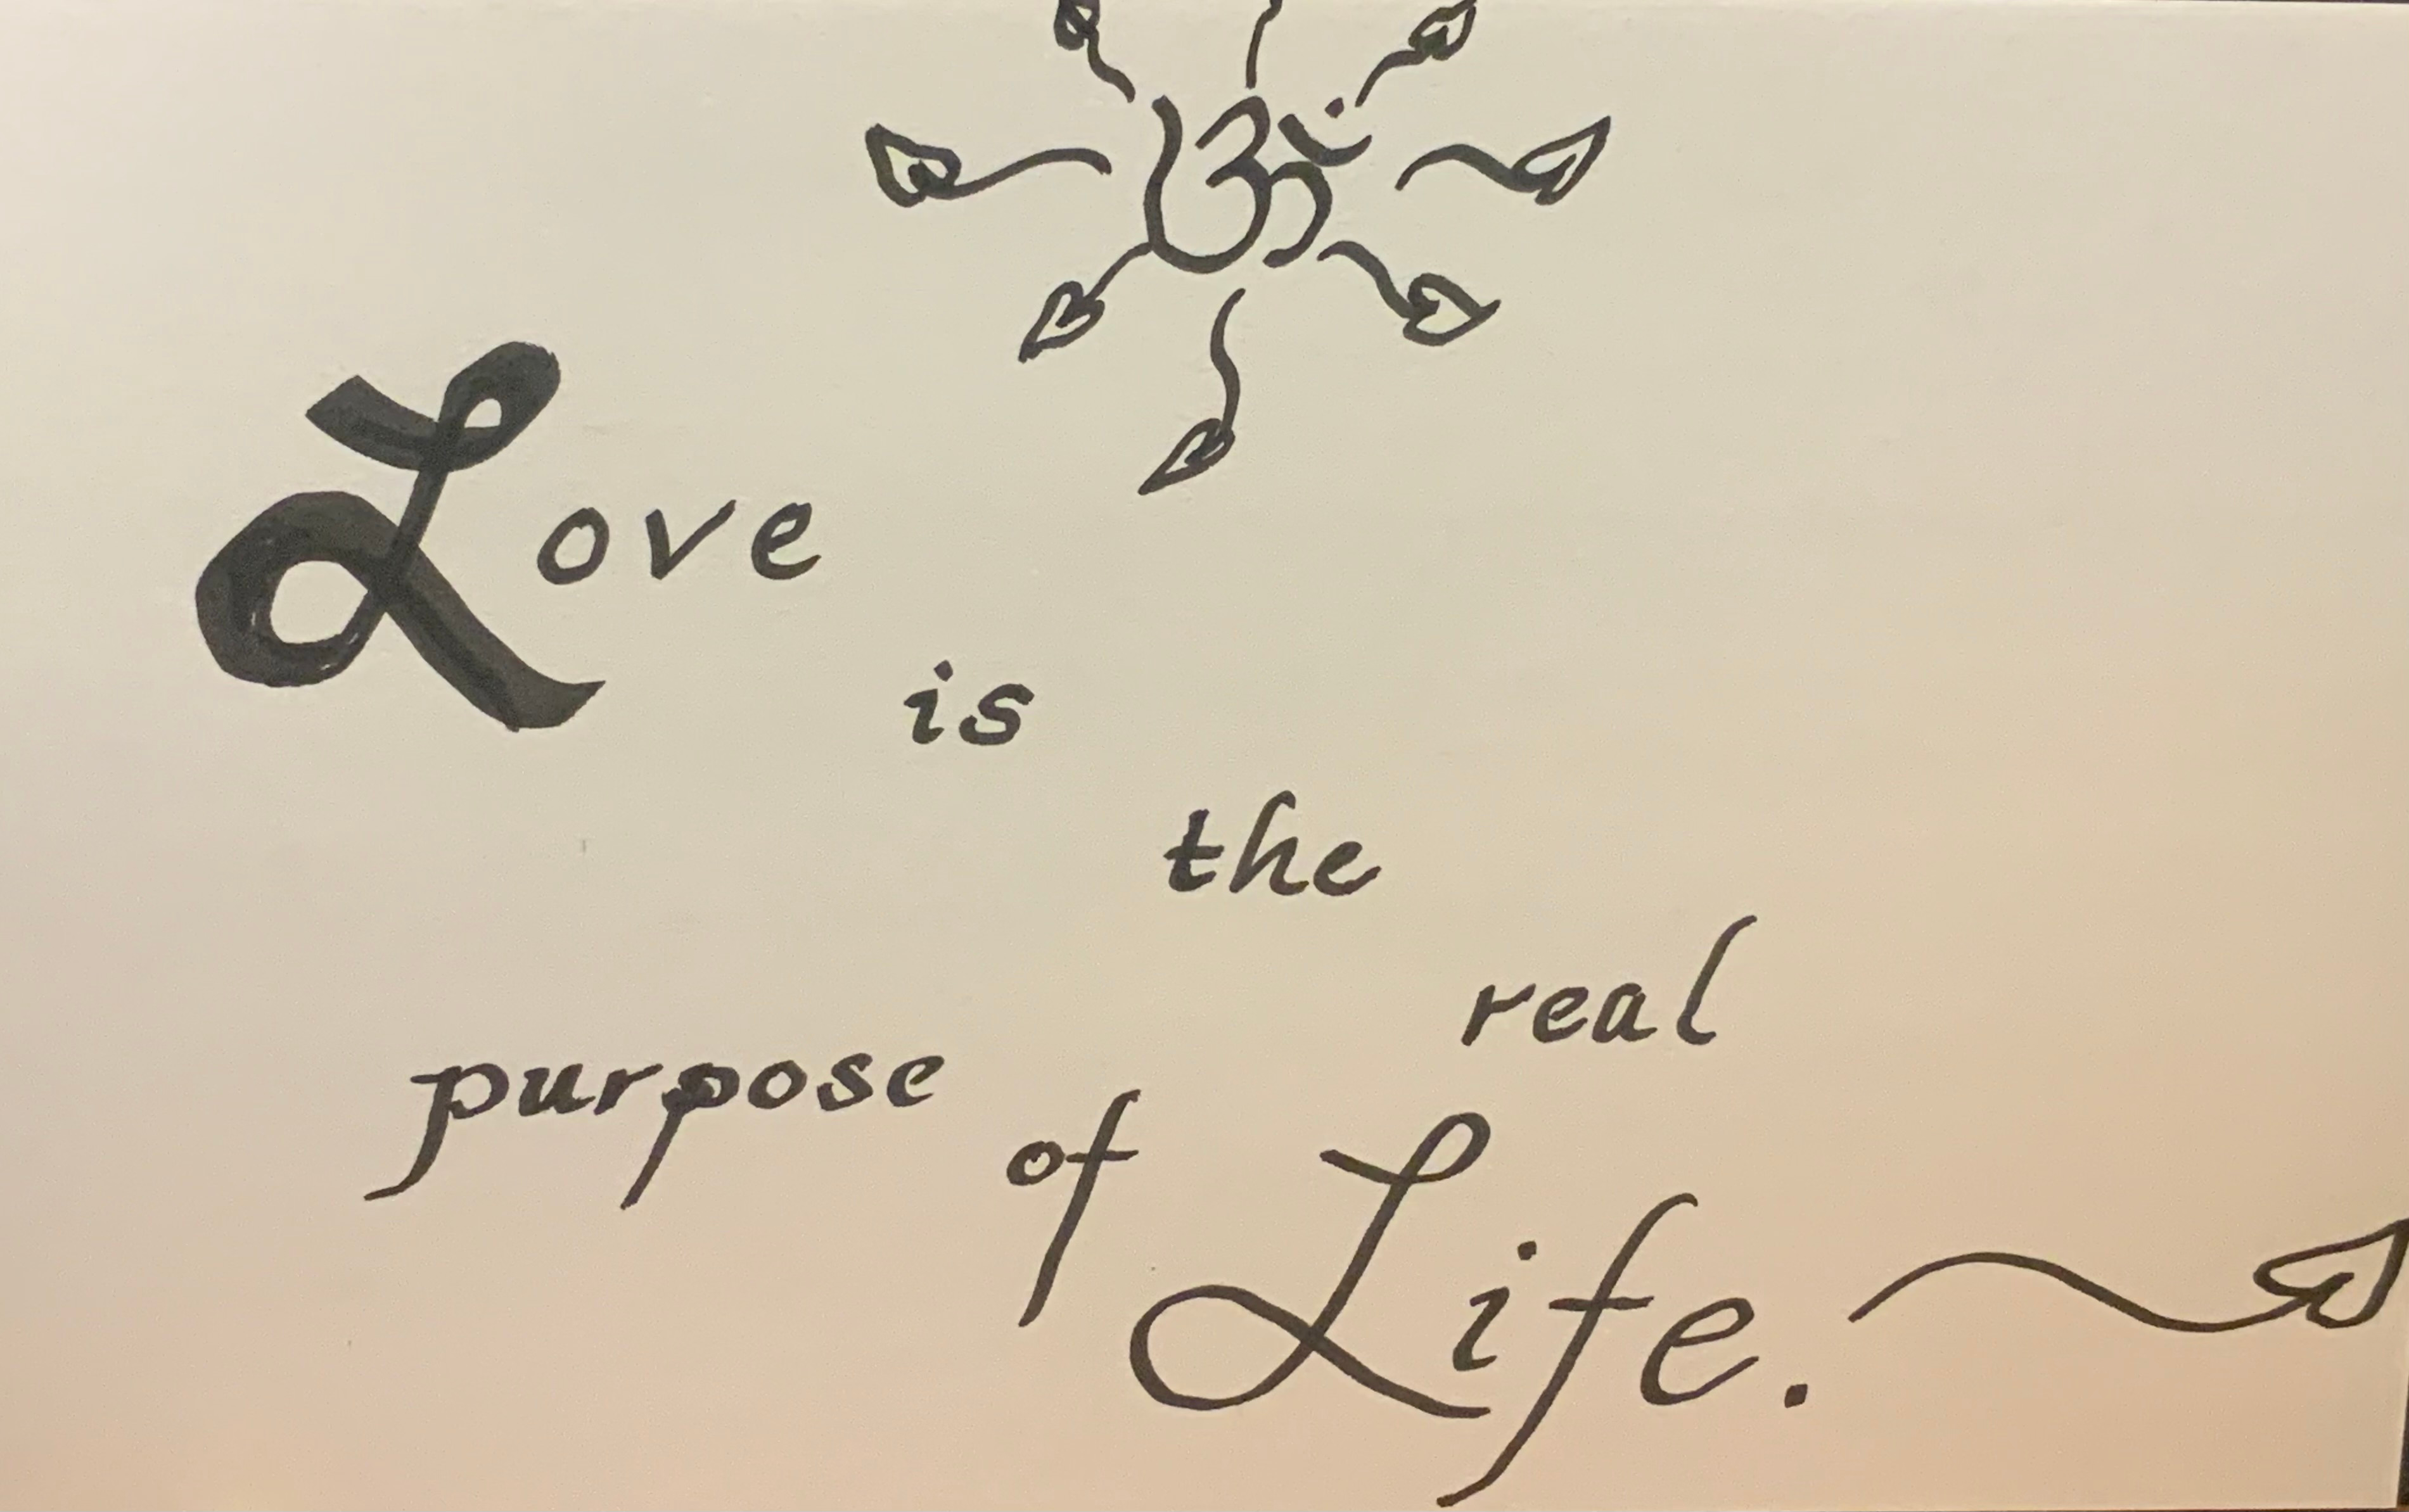 ॐ
Love
is
the
real
purpose
of
Life.